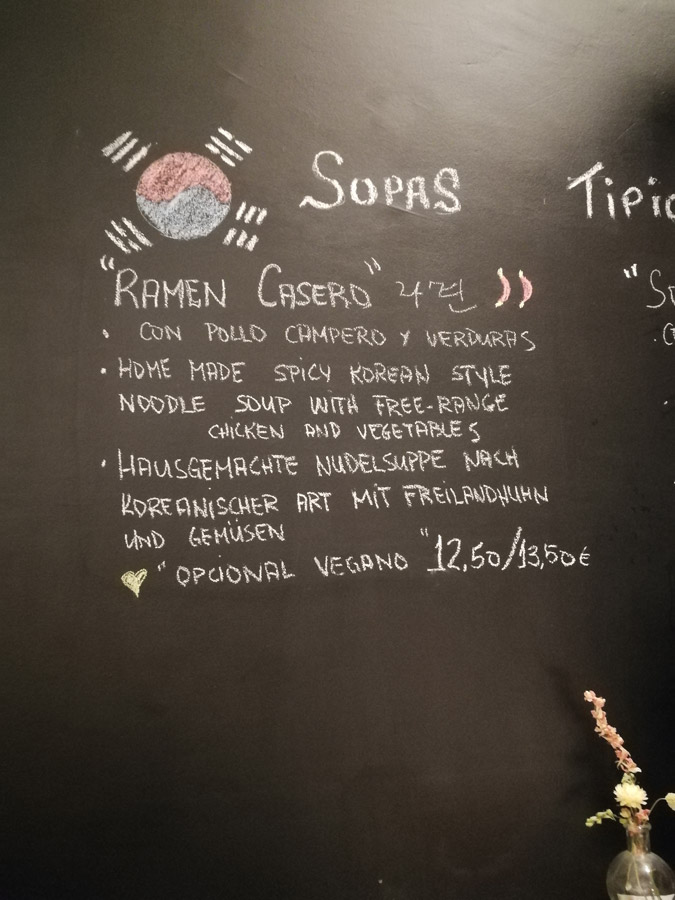 SOPAS
"RAMEN CASERO"
• CON POLLO CAMPERO Y VERDURAS
• HOME MADE SPICY KOREAN STYLE
NOODLE SOUP WITH FREE-RANGE
CHICKEN AND VEGETABLES
• HAUSGEMACHTE NUDELSUPPE NACH
KOREANISCHER ART MIT FREILANDHUHN
UND GEMÜSEN
"OPCIONAL VEGANO" 12,50/13,50€